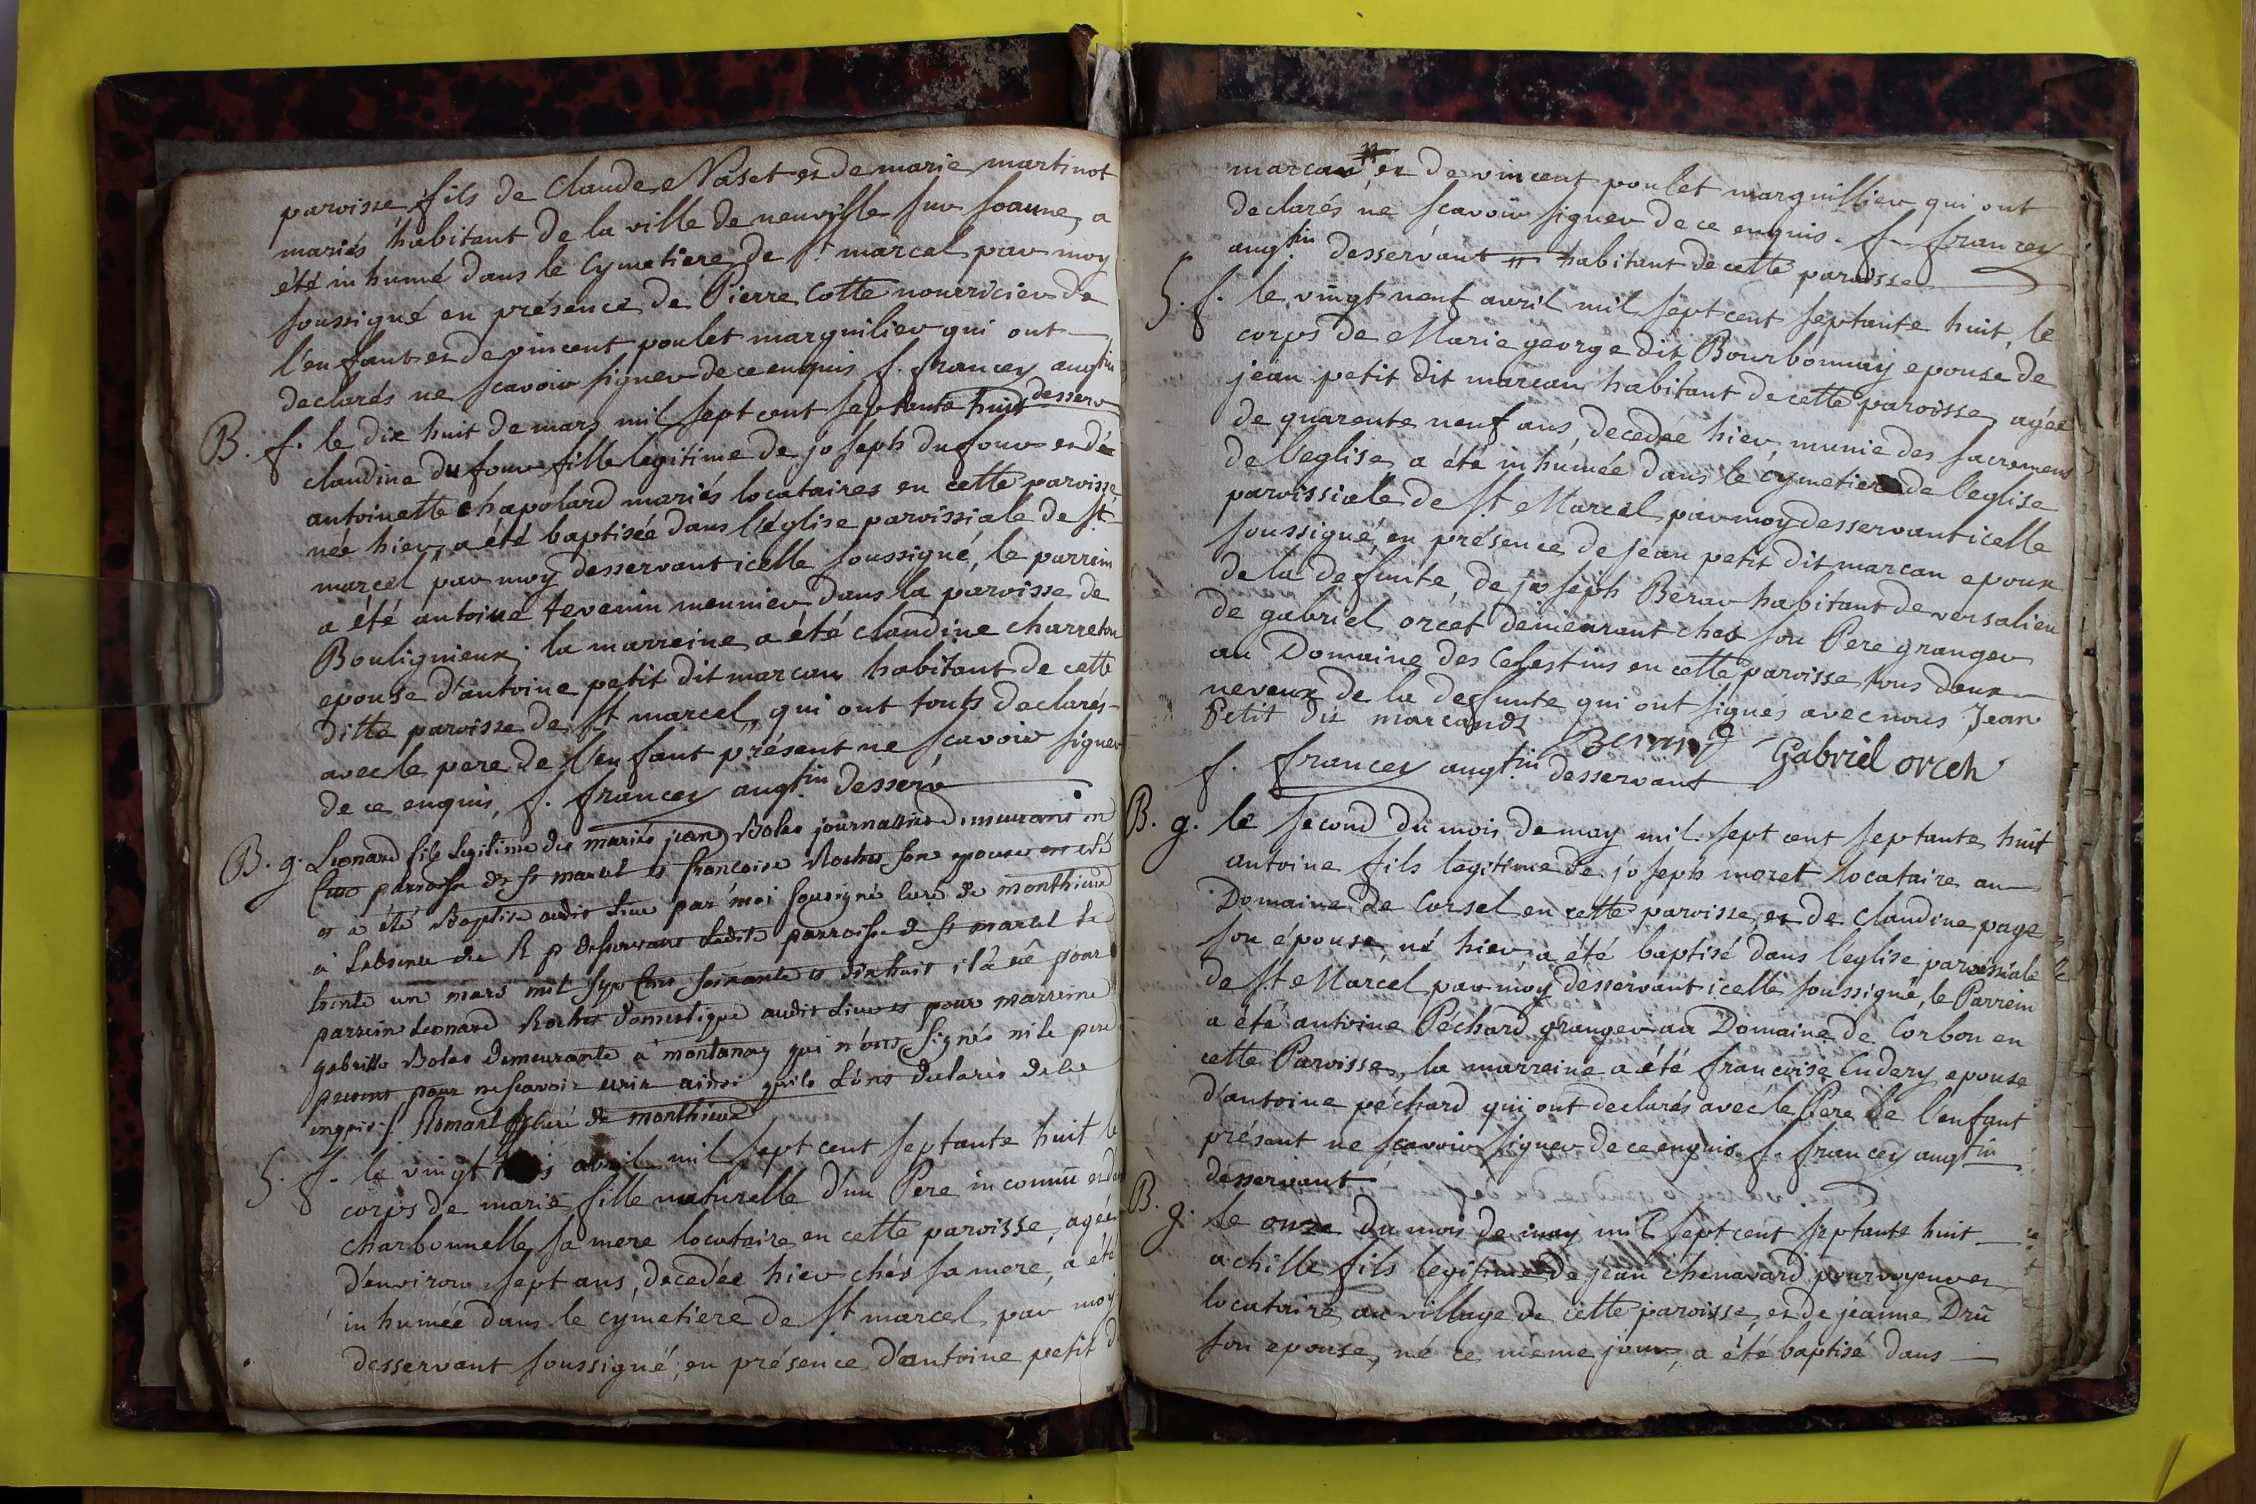 paroisse fils de Claude Naset et de marie martinot
mariés habitant de la ville de neuville sur soanne, a
été inhumé dans le Cymetiere de st marcel par moy
soussigné en présence de Pierre Cotte nourricier de
l'enfant et de vincent poulet marguilier qui ont
declarés ne scavoir signer de ce enquis f. francey augtin
desserv
B. f. le dix huit de mars mil sept cent septante huit
claudine du four fille legitime de joseph dufour et de
antoinette chapolard mariés locataires en cette paroisse,
née hier, a été baptisée dans l'église paroissiale de st
marcel par moy desservant icelle soussigné, le parrein
a été antoine tevenin meunier dans la paroisse de
Bouligneux; la marreine a été claudine charreton
epouse d'antoine petit dit marcan habitant de cette
ditte paroisse de st marcel, qui ont touts declarés
avec le pere de l'enfant présent ne scavoir signer
de ce enquis, f. francey augtin desserv
B. g. Leonard fils Legitime des mariés jean Bolas journallier demeurant en
paroisse de st marcel et francoise Roches son epouse
et a été Baptisé audit Lieu par moi sousigné Curé de monthieux
à Labsence du R p desservant Ladite parroisse de st marcel Le
trente un mars mil sept Cent soixante et dixhuit il a eû pour
parrein Leonard Roches domestique audit Lieu et pour marreine
gabrielle Bolas demeurante à montanay qui n'ont signés ni le pere
present pour ne scavoir ecrire ainsi qu'ils L'ont declarés de ce
enquis / Romant Curé de monthieux
S. f. le vingt trois avril mil sept cent septante huit le
corps de marie fille naturelle d'un Pere inconnu et de
charbonnelle sa mere locataire en cette paroisse, agée
d'environ sept ans, decedée hier chés sa mere, a été
inhumée dans le cymetiere de st marcel par moy
desservant soussigné, en présence d'antoine petit d
marcan et de vincent poulet marguillier qui ont
declarés ne scavoir signer de ce enquis. f. francey
augtin desservant # habitant de cette paroisse
S. f. le vingt neuf avril mil sept cent septante huit, le
corps de Marie george dit Bourbonnay epouse de
jean petit dit marcan habitant de cette paroisse, agée
de quarente neuf ans, decedée hier, munie des sacremens
de l'eglise, a été inhumée dans le cymetiere de l'eglise
paroissiale de St Marcel par moy desservant icelle
soussigné, en présence de jean petit dit marcan epoux
de la defunte, de joseph Berar habitant de versalieu
de gabriel orcet demeurant ches son Pere granger
au Domaine des Celestins en cette paroisse, tous deux
neveux de la defunte qui ont signés avec nous Jean
Petit dit marcands
Gabriel orcen
f. francey augtin desservant
B. g. le second du mois de may mil sept cent septante huit
antoine fils legitime de joseph moret locataire au
Domaine de Corsel en cette paroisse, et de Claudine page
son épouse, né hier, a été baptisé dans l'eglise paroissiale
de St Marcel par moy desservant icelle soussigné, le Parrein
a été antoine Péchard granger au Domaine de Corbon en
cette Paroisse, la marreine a été francoise Cudery epouse
d'antoine péchard qui ont declarés avec le Pere de l'enfant
présent ne scavoir signer de ce enquis. f. francey augtin
desservant
B. g. Le onze du mois de may mil sept cent septante huit
achille fils legitime de jean chenavard pourvoyeur et
locataire au village de cette paroisse, et de jeanne Drû
son epouse, né ce même jour, a été baptisé dans